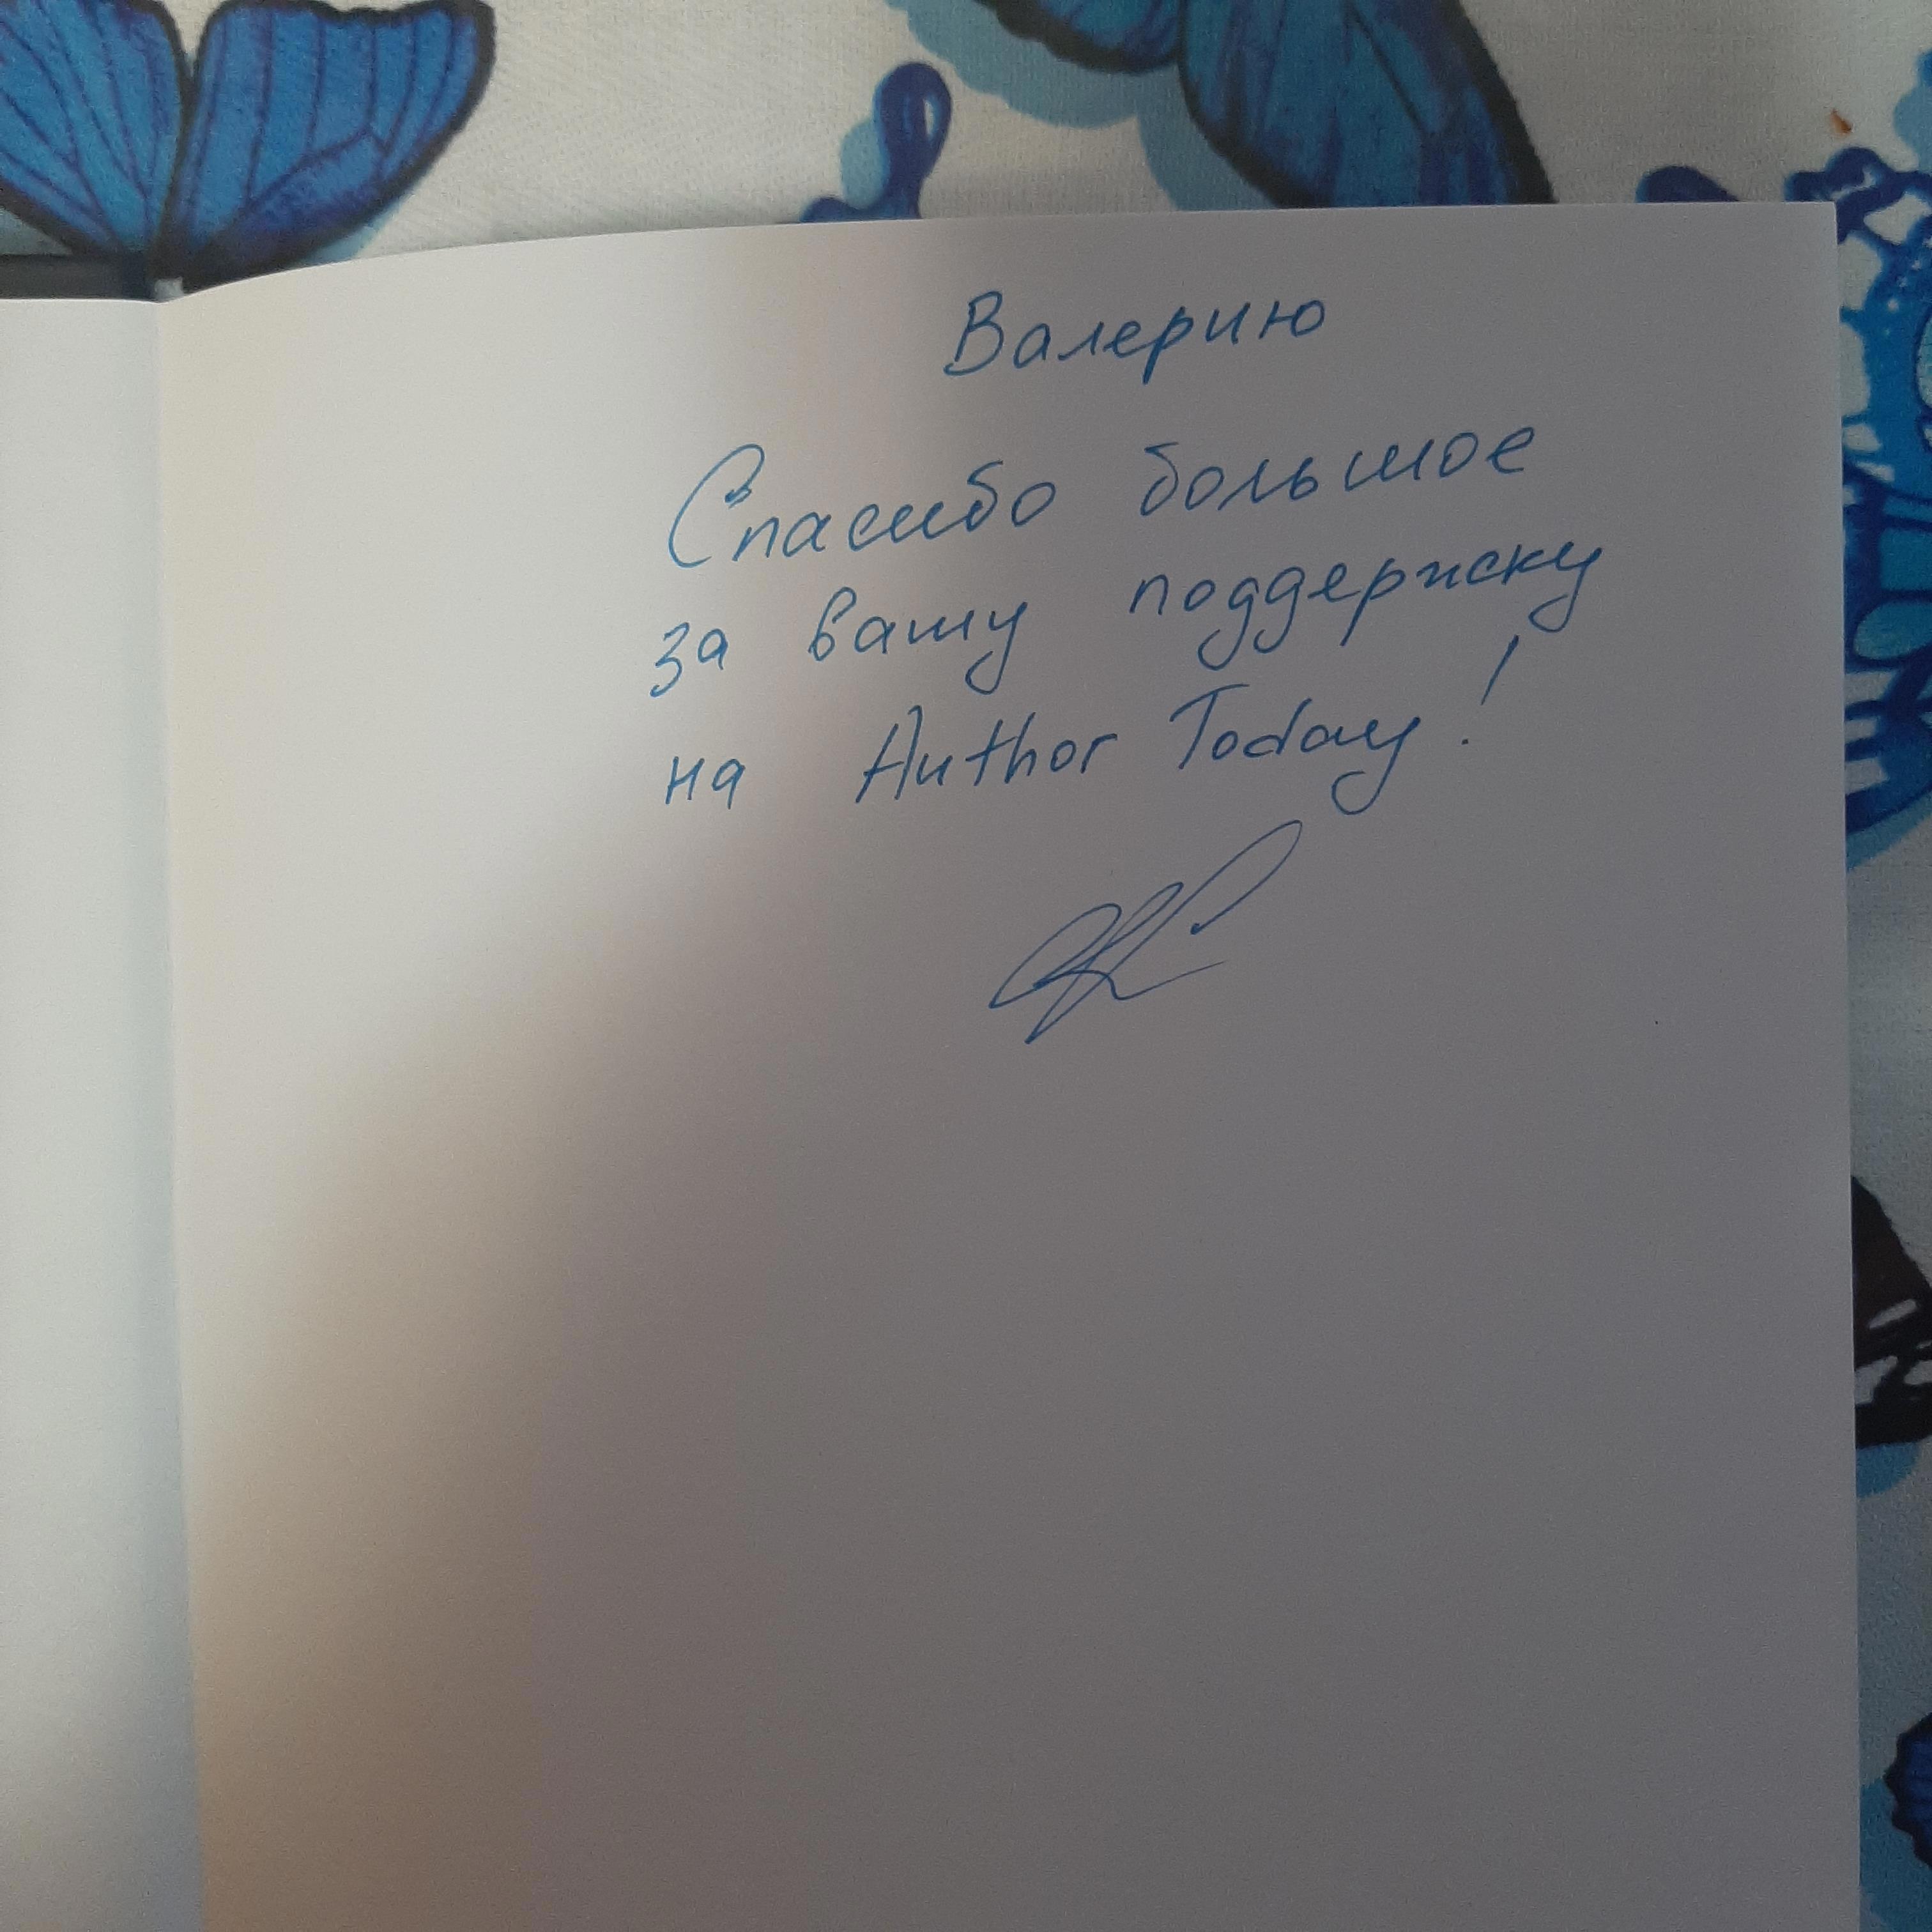 Валерию
Спасибо большое
за вашу поддержку
на Author Today!